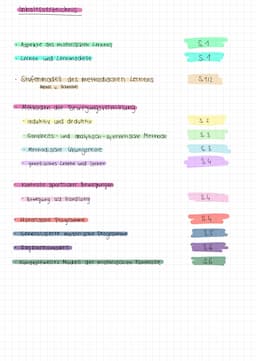 Inhaltsverzeichnis
· Aspekte des motorischen Lernens S.1
· Lehr- und Lernmodelle S.1
· Stufenmodell des methodischen Lernens S.1/2
Methoden der Bewegungsvermittlung
· induktiv und deduktiv S.2
· Ganzheits- und analytisch-synthetische Methode S.3
· Methodische Übungsreihe S.3
· genetisches Lernen und Lehren S.4
Kontrolle sportlicher Bewegungen
· Bewegung als Handlung S.4
Motorische Programme S.4
· Generalisierte motorische Programme
· Regelkreismodell
Modell der motorischen Kontrolle